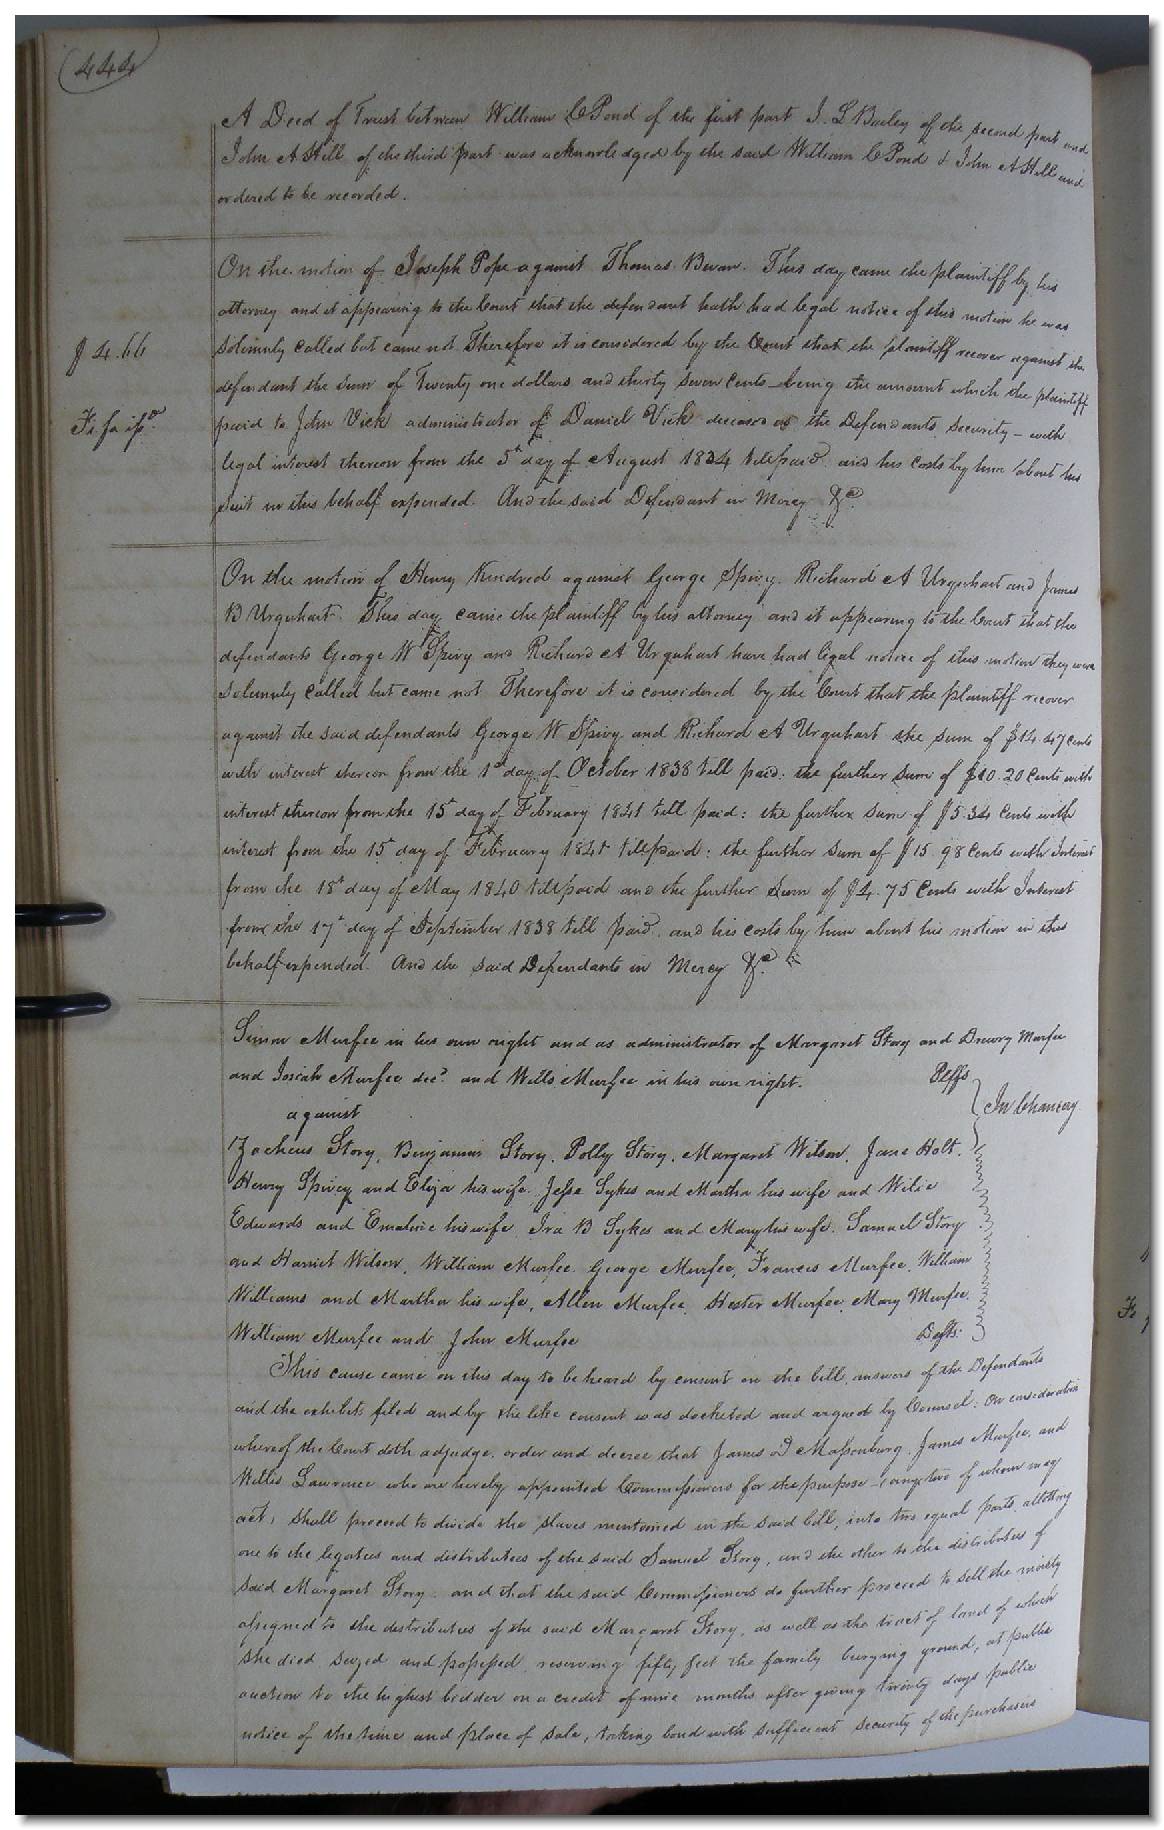 444
A Deed of Trust between William C Pond of the first part J. L Bailey of the second part and
John A Hill of the third part was acknowledged by the said William C Pond & John A Hill and
ordered to be recorded.
On the motion of Joseph Pope against Thomas Bevan. This day came the plaintiff by his
attorney and it appearing to the Court that the defendant hath had legal notice of this motion he was
$4.66
solemnly called but came not Therefore it is considered by the Court that the plaintiff recover against the
defendant the sum of Twenty one dollars and thirty seven cents being the amount which the plaintiff
Fi fa
paid to John Vick administrator of Daniel Vick deceased as the Defendants security – with
legal interest thereon from the 5th day of August 1834 till paid and his costs by him about his
suit in this behalf expended. And the said Defendant in Mercy &c
On the motion of Henry Kindred against George Spivy. Richard A Urquhart and James
B Urquhart. This day came the plaintiff by his attorney and it appearing to the Court that the
defendants George W Spivy and Richard A Urquhart have had legal notice of this motion they were
solemnly called but came not Therefore it is considered by the Court that the plaintiff recover
against the said defendants George W Spivy and Richard A Urquhart the sum of $14.47 cents
with interest thereon from the 1st day of October 1838 till paid: the further sum of $10.20 Cents with
interest thereon from the 15 day of February 1841 till paid: the further sum of $5.34 Cents with
interest from the 15th day of February 1841 till paid: the further sum of $15.98 Cents with Interest
from the 18th day of May 1840 till paid and the further sum of $4.75 Cents with Interest
from the 17th day of September 1838 till paid. and his costs by him about his motion in this
behalf expended. And the said Defendants in Mercy &c.
Simon Murfee in his own right and as administrator of Margaret Story and Drewry Murfee
and Josiah Murfee decd. and Wills Murfee in his own right. Plffs
against
In Chancery
Zacheus Story, Benjamin Story, Polly Story, Margaret Wilson, Jane Holt.
Henry Spivey and Eliza his wife. Jesse Sykes and Martha his wife and Wilie
Edwards and Emaline his wife Ira B Sykes and Mary his wife. Samuel Story
and Harriet Wilson, William Murfee. George Murfee, Francis Murfee, William
Williams and Martha his wife, Allen Murfee, Hester Murfee, Mary Murfee.
William Murfee and John Murfee Defts.
This cause came on this day to be heard by consent on the bill, answers of the Defendants
and the exhibits filed and by the like consent was docketed and argued by Counsel: On consideration
whereof the Court doth adjudge, order and decree that James D Massenburg, James Murfee, and
Willis Lawrence who are hereby appointed Commissioners for the purpose (any two of whom may
act, shall proceed to divide the slaves mentioned in the said bill, into two equal parts, allotting
one to the legatees and distributees of the said Samuel Story, and the other to the distributees of
said Margaret Story. and that the said Commissioners do further proceed to sell the moiety
assigned to the distributees of the said Margaret Story, as well as the tract of land of which
she died seized and possessed, reserving fifty feet the family burying ground, at public
auction to the highest bidder on a credit of nine months after giving twenty days public
notice of the time and place of sale, taking bond with sufficient security of the purchasers